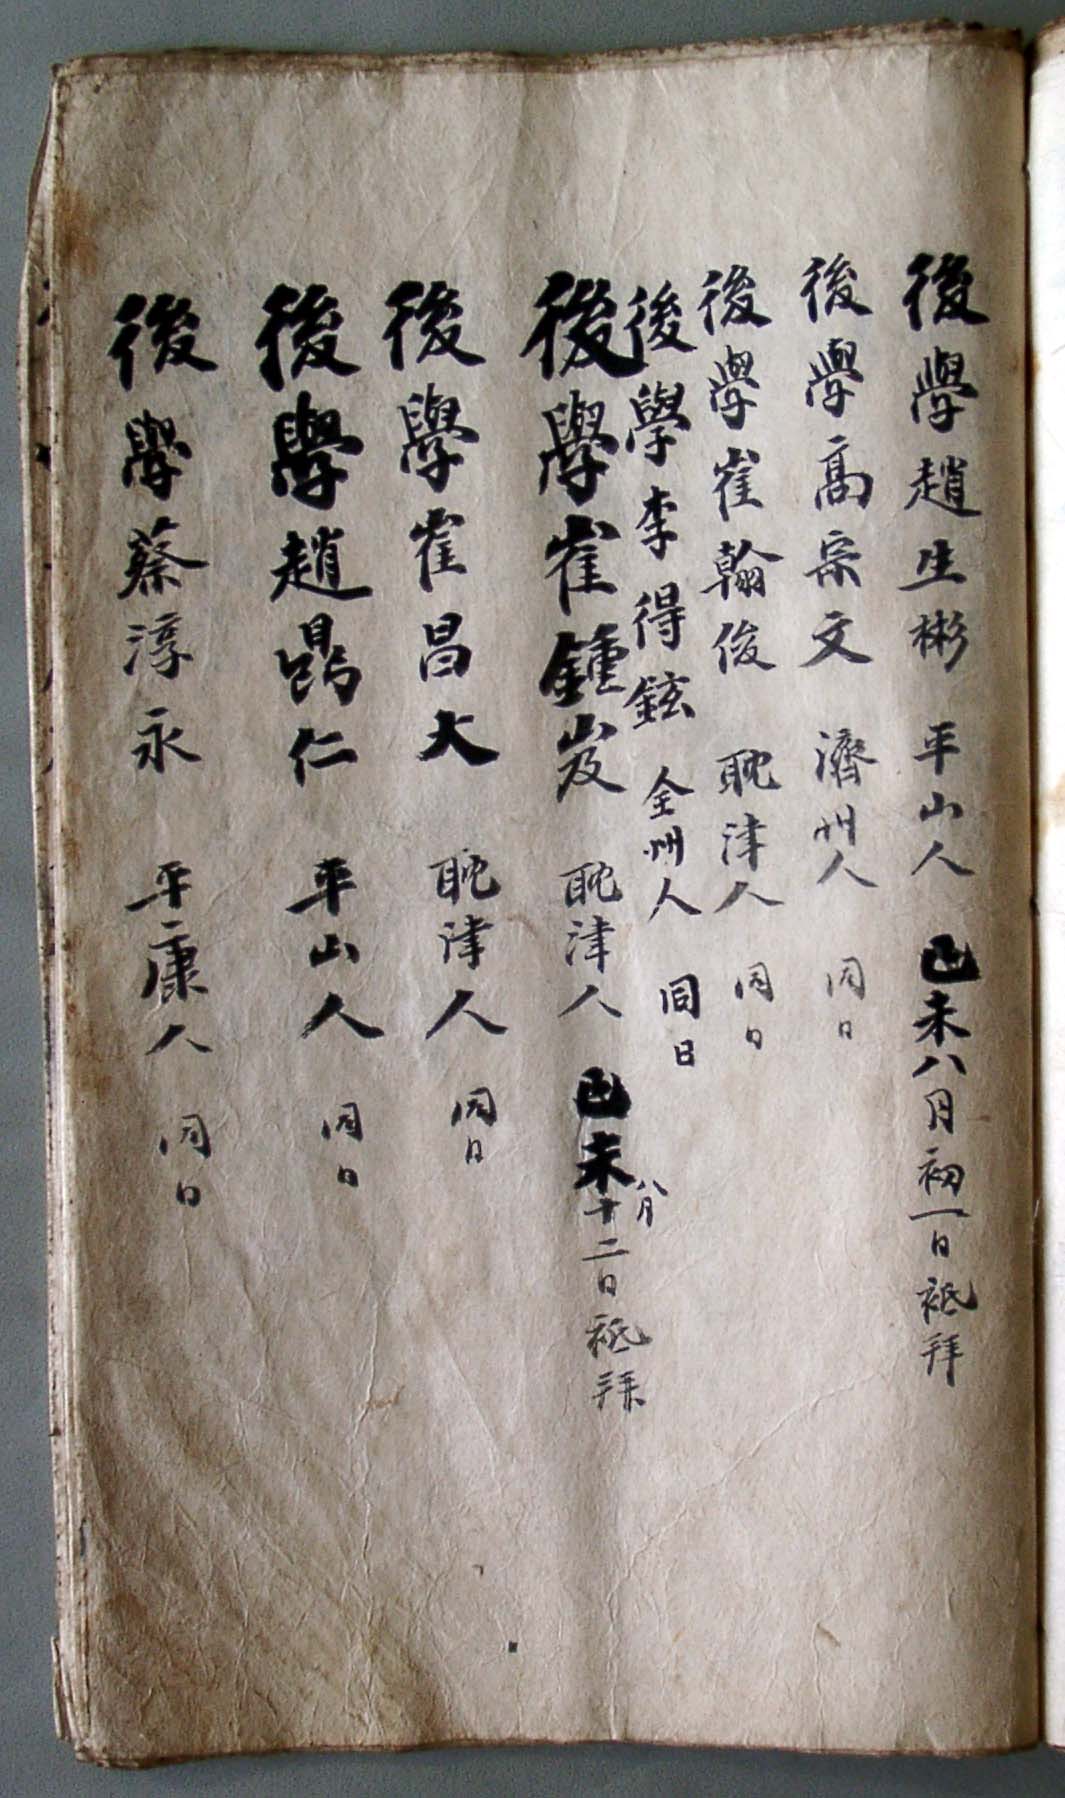 後學趙生彬 平山人 己未八月初一日祗拜
後學高宗文 濟州人 同日
後學崔翰俊 耽津人 同日
後學李得鉉 全州人 同日
後學崔鍾岌 耽津人 己未八月十二日祗拜
後學崔昌大 耽津人 同日
後學趙 仁 平山人 同日
後學蔡淳永 平康人 同日